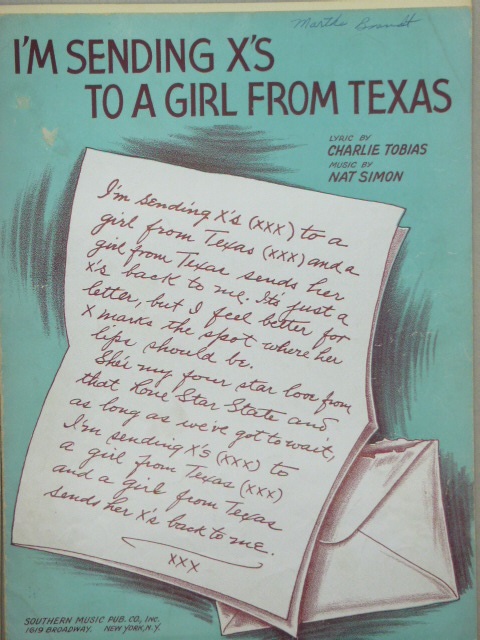 Martha Brandt
I'M SENDING X'S
TO A GIRL FROM TEXAS
LYRIC BY
CHARLIE TOBIAS
MUSIC BY
NAT SIMON
I'm sending X's (XXX) to a
girl from Texas (XXX) and a
girl from Texas sends her
X's back to me. It's just a
letter, but I feel better for
X marks the spot where her
lips should be.
She's my four star love from
that Lone Star State and
as long as we've got to wait,
I'm sending X'S (XXX) to
a girl from Texas (XXX)
and a girl from Texas
sends her X's back to me.
XXX
SOUTHERN MUSIC PUB. CO., INC.
1619 BROADWAY. NEW YORK, N.Y.